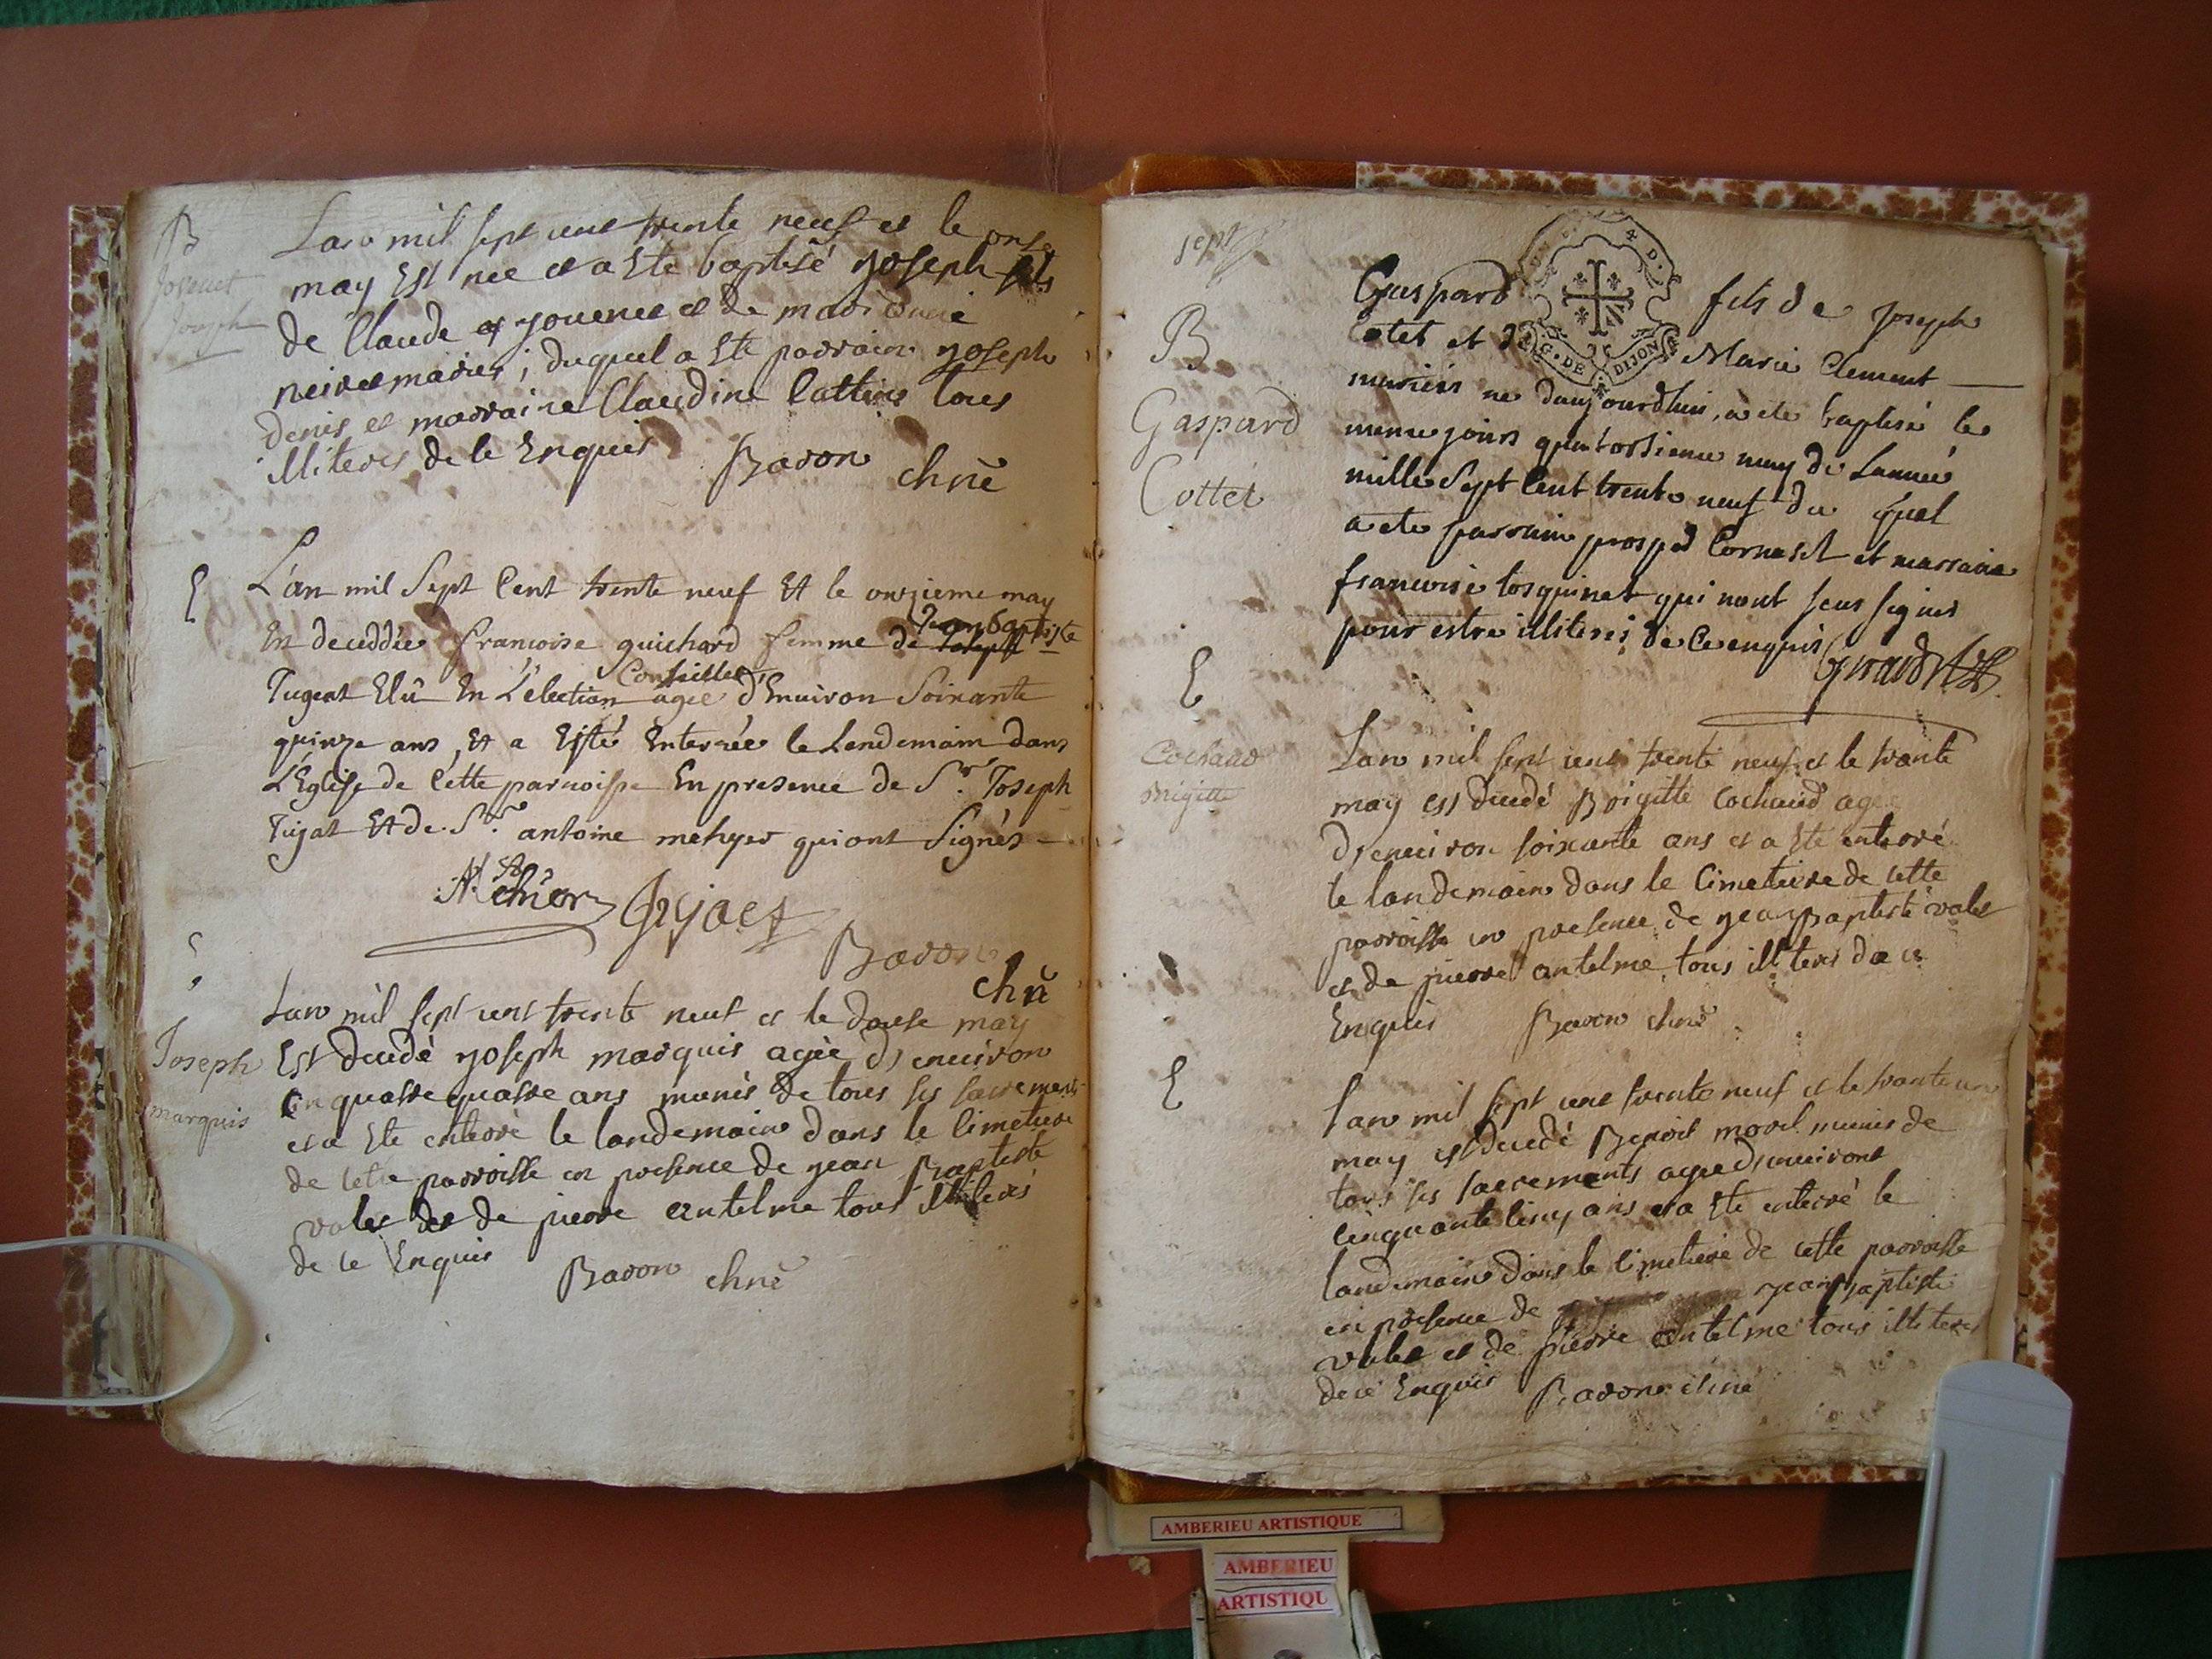 B
Jovenet
Joseph
Lan mil sept cent trente neuf et le onse
may Est nee et a Ete baptisé yoseph fils
de Claude yovenet et de
mariés, duquel a Ete parrain yoseph
denis et marraine Claudine Cattin tous
illiteres de ce Enquis Baron chne
E
L'an mil Sept Cent trente neuf Et le onzieme may
En deceddée francoise guichard femme de Joseph Jean baptiste
Tugeat Elû En L'election Conseiller agée d'Enuiron Soixante
quinze ans, Et a Esté Enterrée le Lendemain dans
L'Eglise de Cette parroisse En presence de Sr. Joseph
Tujat Et de Sr. antoine mehyer qui ont Signés
Mehier
Baron
chne
Joseph
marquis
Lan mil sept cent trente neuf et le douse may
Est decedé yoseph marquis agée d'enuiron
quattre ans munis de tous ses sacrements
et a Ete enterré le landemain dans le Cimetiere
de cette parroisse en presence de yean Baptiste
valet et de pierre antelme tous illiterés
de ce Enquis Baron chne
sept
G. DE DIJON
B
Gaspard
Cottet
Gaspard fils de Joseph
Cotet et de Marie Clement
mariés ne daujourdhui, a ete baptisé le
meme jours quatorsieme may de Lannée
mille Sept Cent trente neuf du quel
a ete parrain prosper Cornaset et marraine
francoise tosquinet qui nont seus signer
pour estre illiterés de Ce enquis
E
Cochaud
Brigitte
Lan mil sept cent trente neuf et le trante
may est decedé Brigitte Cochaud agee
d'enuiron soixante ans et a Ete enterré
le landemain dans le Cimetiere de cette
parroisse en presence de yean Baptiste valet
et de pierre antelme tous illiterés de ce
Enquis Baron chne
E
Lan mil sept cent trente neuf et le trante un
may est decedé Benoit morel munis de
tous ses sacrements agee d'enuiront
cinquante cinq ans et a Ete enterré le
landemain dans le Cimetiere de cette parroisse
en presence de yean Baptiste
valet et de pierre antelme tous illiteres
de ce Enquis Baron chne
AMBERIEU ARTISTIQUE
AMBERIEU
ARTISTIQU